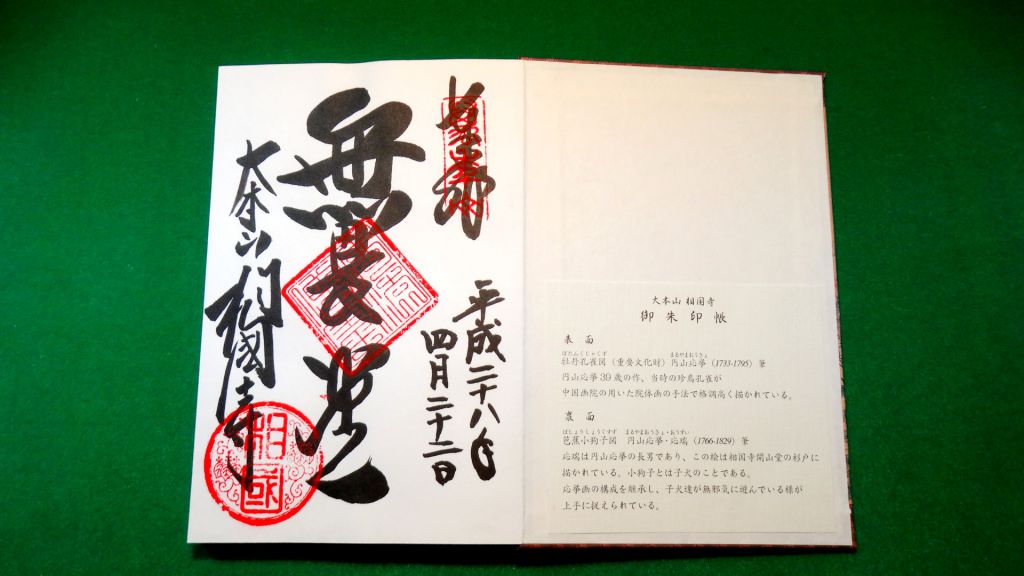 平成二十八年
四月二十二日
無畏堂
大本山相國寺
相國
大本山 相国寺
御朱印帳
表 面
ぼたんくじゃくず まるやまおうきょ
牡丹孔雀図(重要文化財)円山応挙(1733-1795)筆
円山応挙39歳の作、当時の珍鳥孔雀が
中国画院の用いた院体画の手法で格調高く描かれている。
裏 面
ばしょうしょうくすず まるやまおうきょ・おうずい
芭蕉小狗子図 円山応挙・応瑞(1766-1829)筆
応瑞は円山応挙の長男であり、この絵は相国寺開山堂の杉戸に
描かれている。小狗子とは子犬のことである。
応挙画の構成を継承し、子犬達が無邪気に遊んでいる様が
上手に捉えられている。